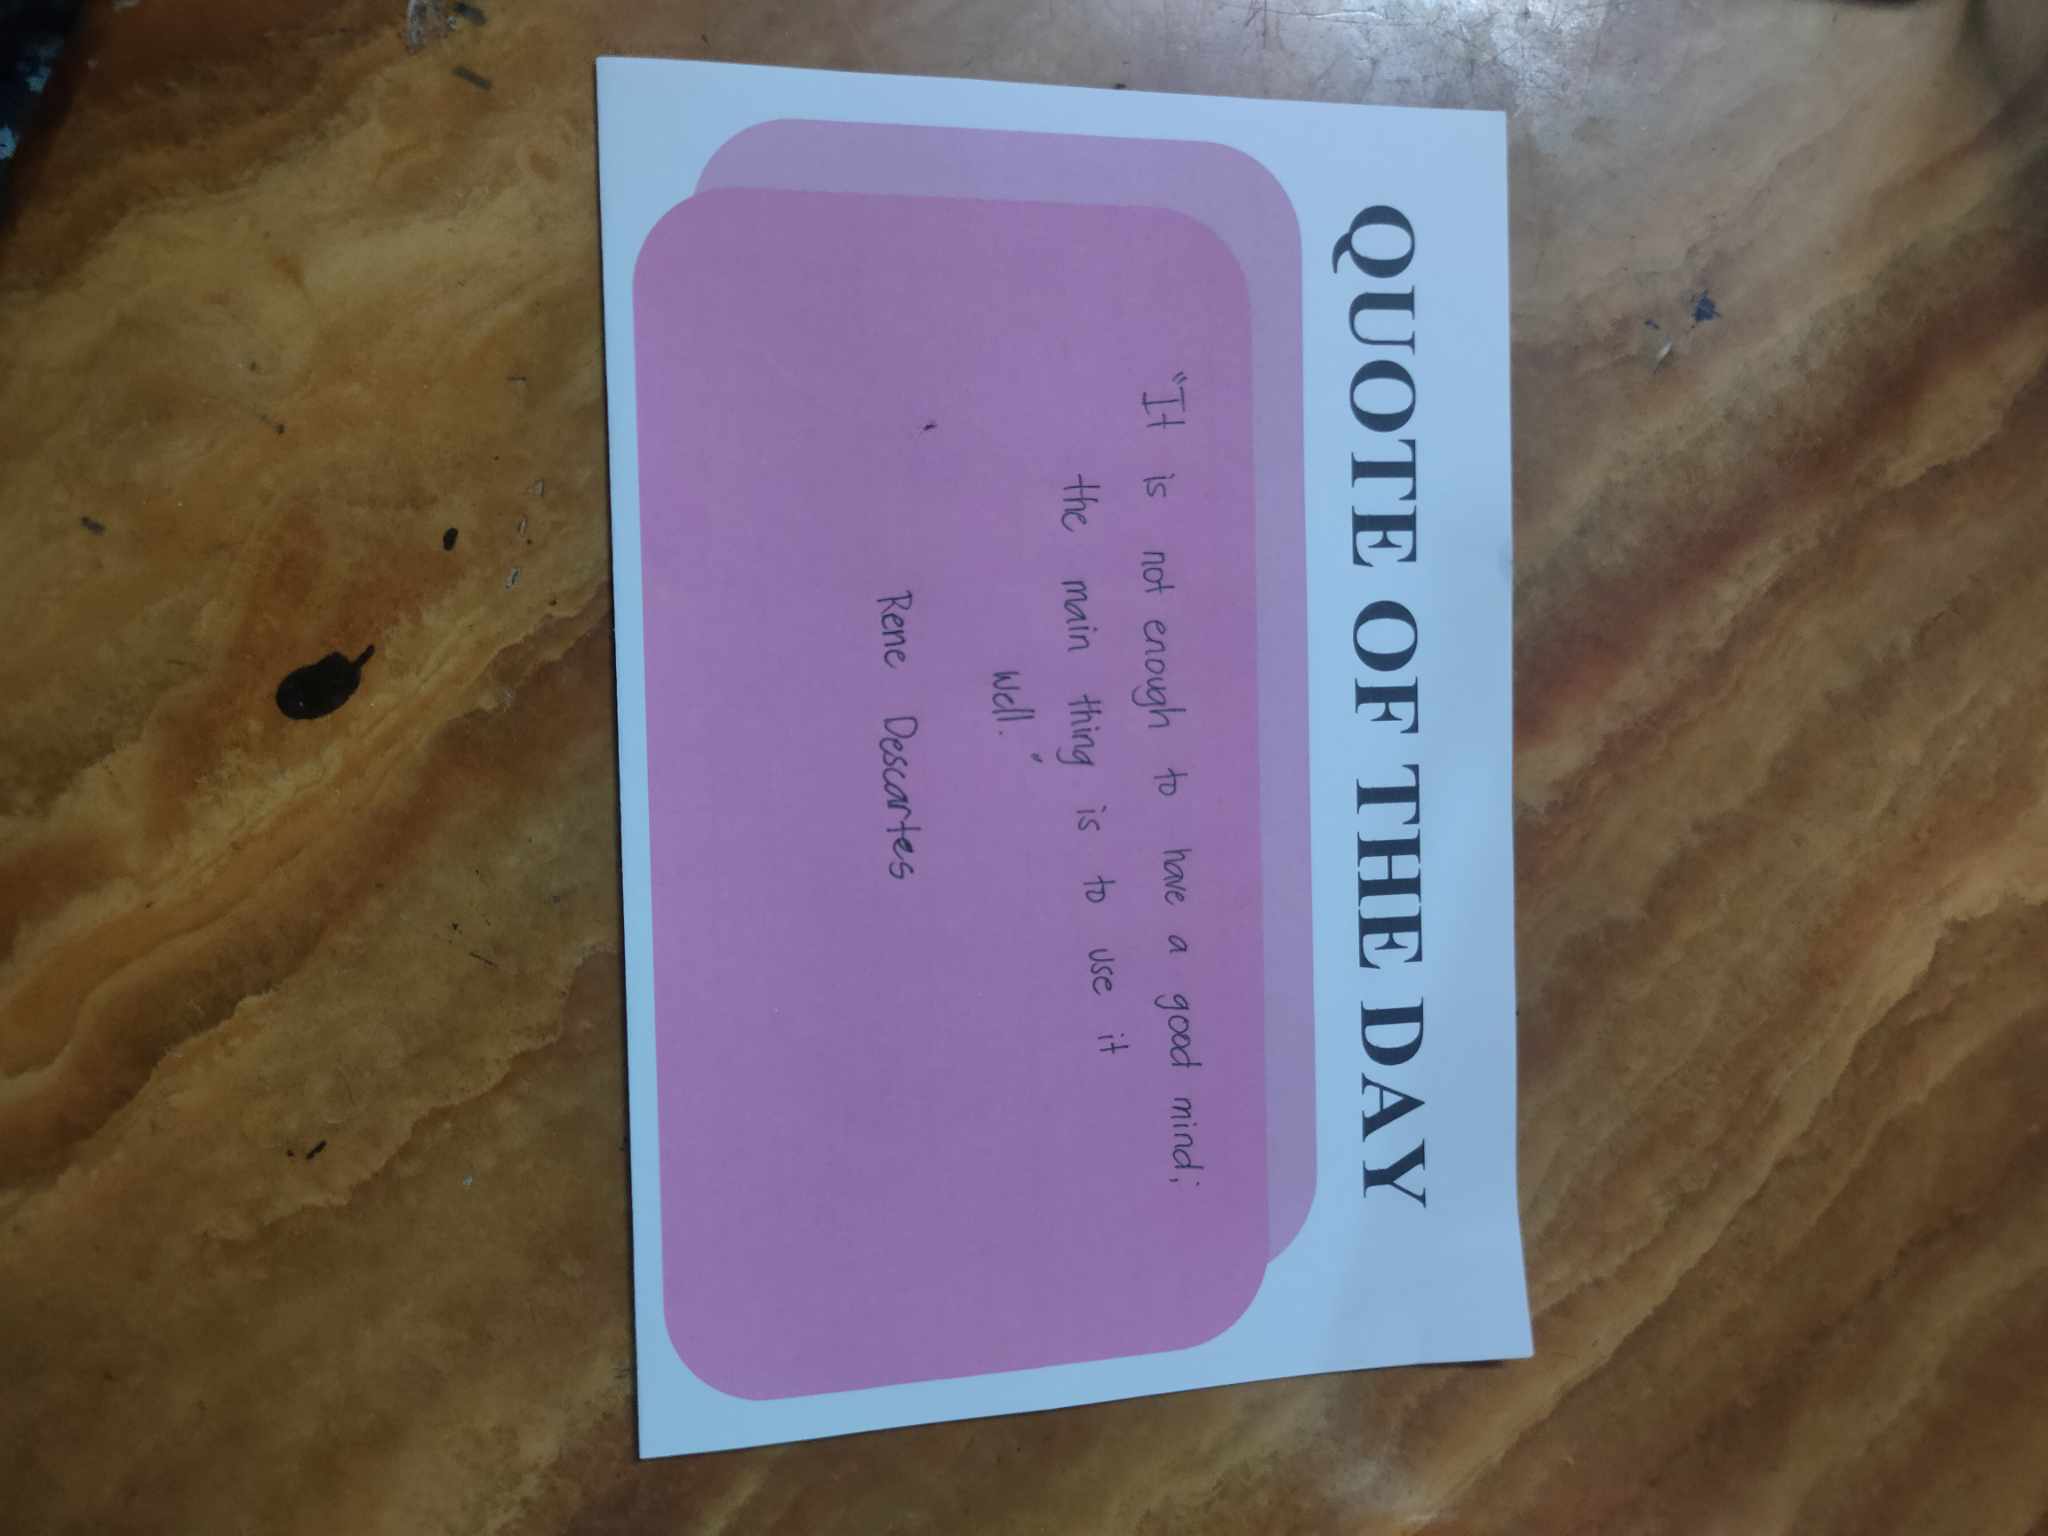 QUOTE OF THE DAY
"It is not enough to have a good mind;
the main thing is to use it
well."
Rene Descartes